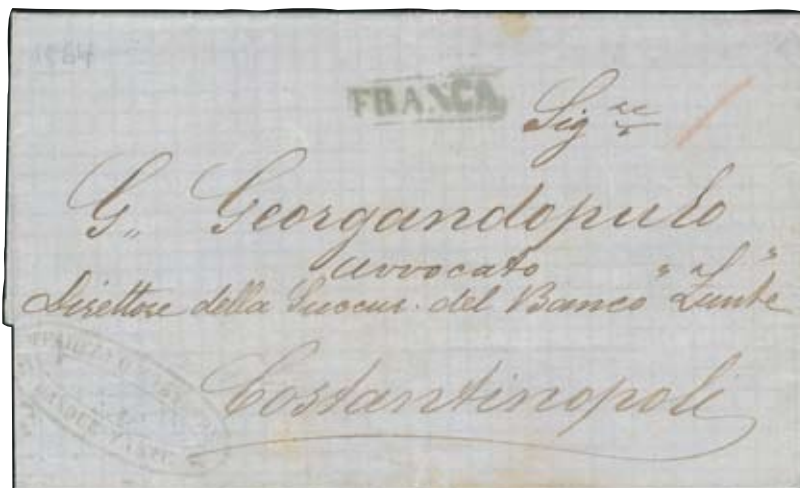 FRANCA
Sig.re
G. Georgandopulo
Avvocato
Direttore della Succur. del Banco "Zante"
Costantinopoli